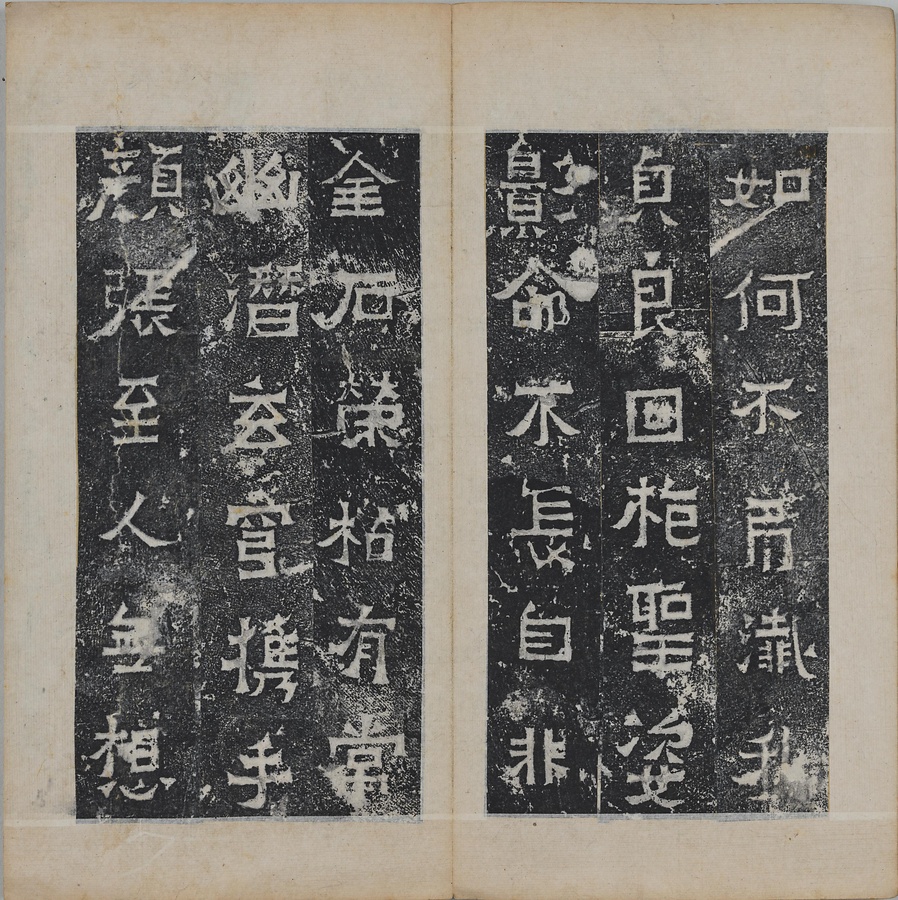 如何不弔瀸我
貞良回抱聖姿
命不長自非
金石榮枯有常
幽潛玄穹携手
顏張至人無想